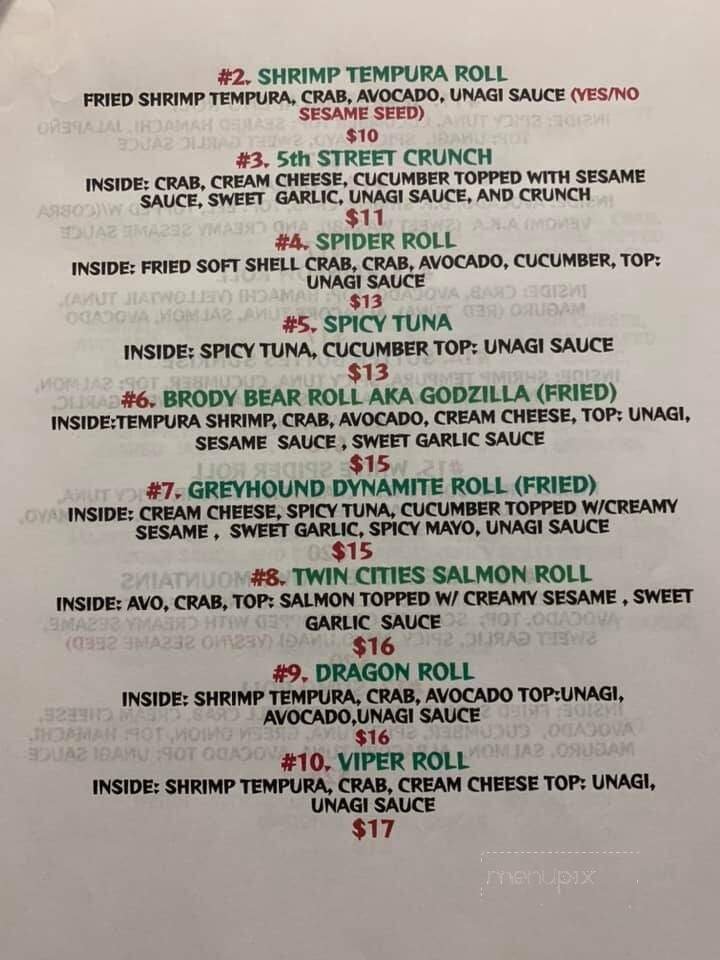 #2. SHRIMP TEMPURA ROLL
FRIED SHRIMP TEMPURA, CRAB, AVOCADO, UNAGI SAUCE (YES/NO
SESAME SEED)
$10
#3. 5th STREET CRUNCH
INSIDE: CRAB, CREAM CHEESE, CUCUMBER TOPPED WITH SESAME
SAUCE, SWEET GARLIC, UNAGI SAUCE, AND CRUNCH
$11
#4. SPIDER ROLL
INSIDE: FRIED SOFT SHELL CRAB, CRAB, AVOCADO, CUCUMBER, TOP:
UNAGI SAUCE
$13
#5. SPICY TUNA
INSIDE: SPICY TUNA, CUCUMBER TOP: UNAGI SAUCE
$13
#6. BRODY BEAR ROLL AKA GODZILLA (FRIED)
INSIDE:TEMPURA SHRIMP, CRAB, AVOCADO, CREAM CHEESE, TOP: UNAGI,
SESAME SAUCE , SWEET GARLIC SAUCE
$15
#7. GREYHOUND DYNAMITE ROLL (FRIED)
INSIDE: CREAM CHEESE, SPICY TUNA, CUCUMBER TOPPED W/CREAMY
SESAME , SWEET GARLIC, SPICY MAYO, UNAGI SAUCE
$15
#8. TWIN CITIES SALMON ROLL
INSIDE: AVO, CRAB, TOP: SALMON TOPPED W/ CREAMY SESAME , SWEET
GARLIC SAUCE
$16
#9. DRAGON ROLL
INSIDE: SHRIMP TEMPURA, CRAB, AVOCADO TOP:UNAGI,
AVOCADO,UNAGI SAUCE
$16
#10. VIPER ROLL
INSIDE: SHRIMP TEMPURA, CRAB, CREAM CHEESE TOP: UNAGI,
UNAGI SAUCE
$17
menupix